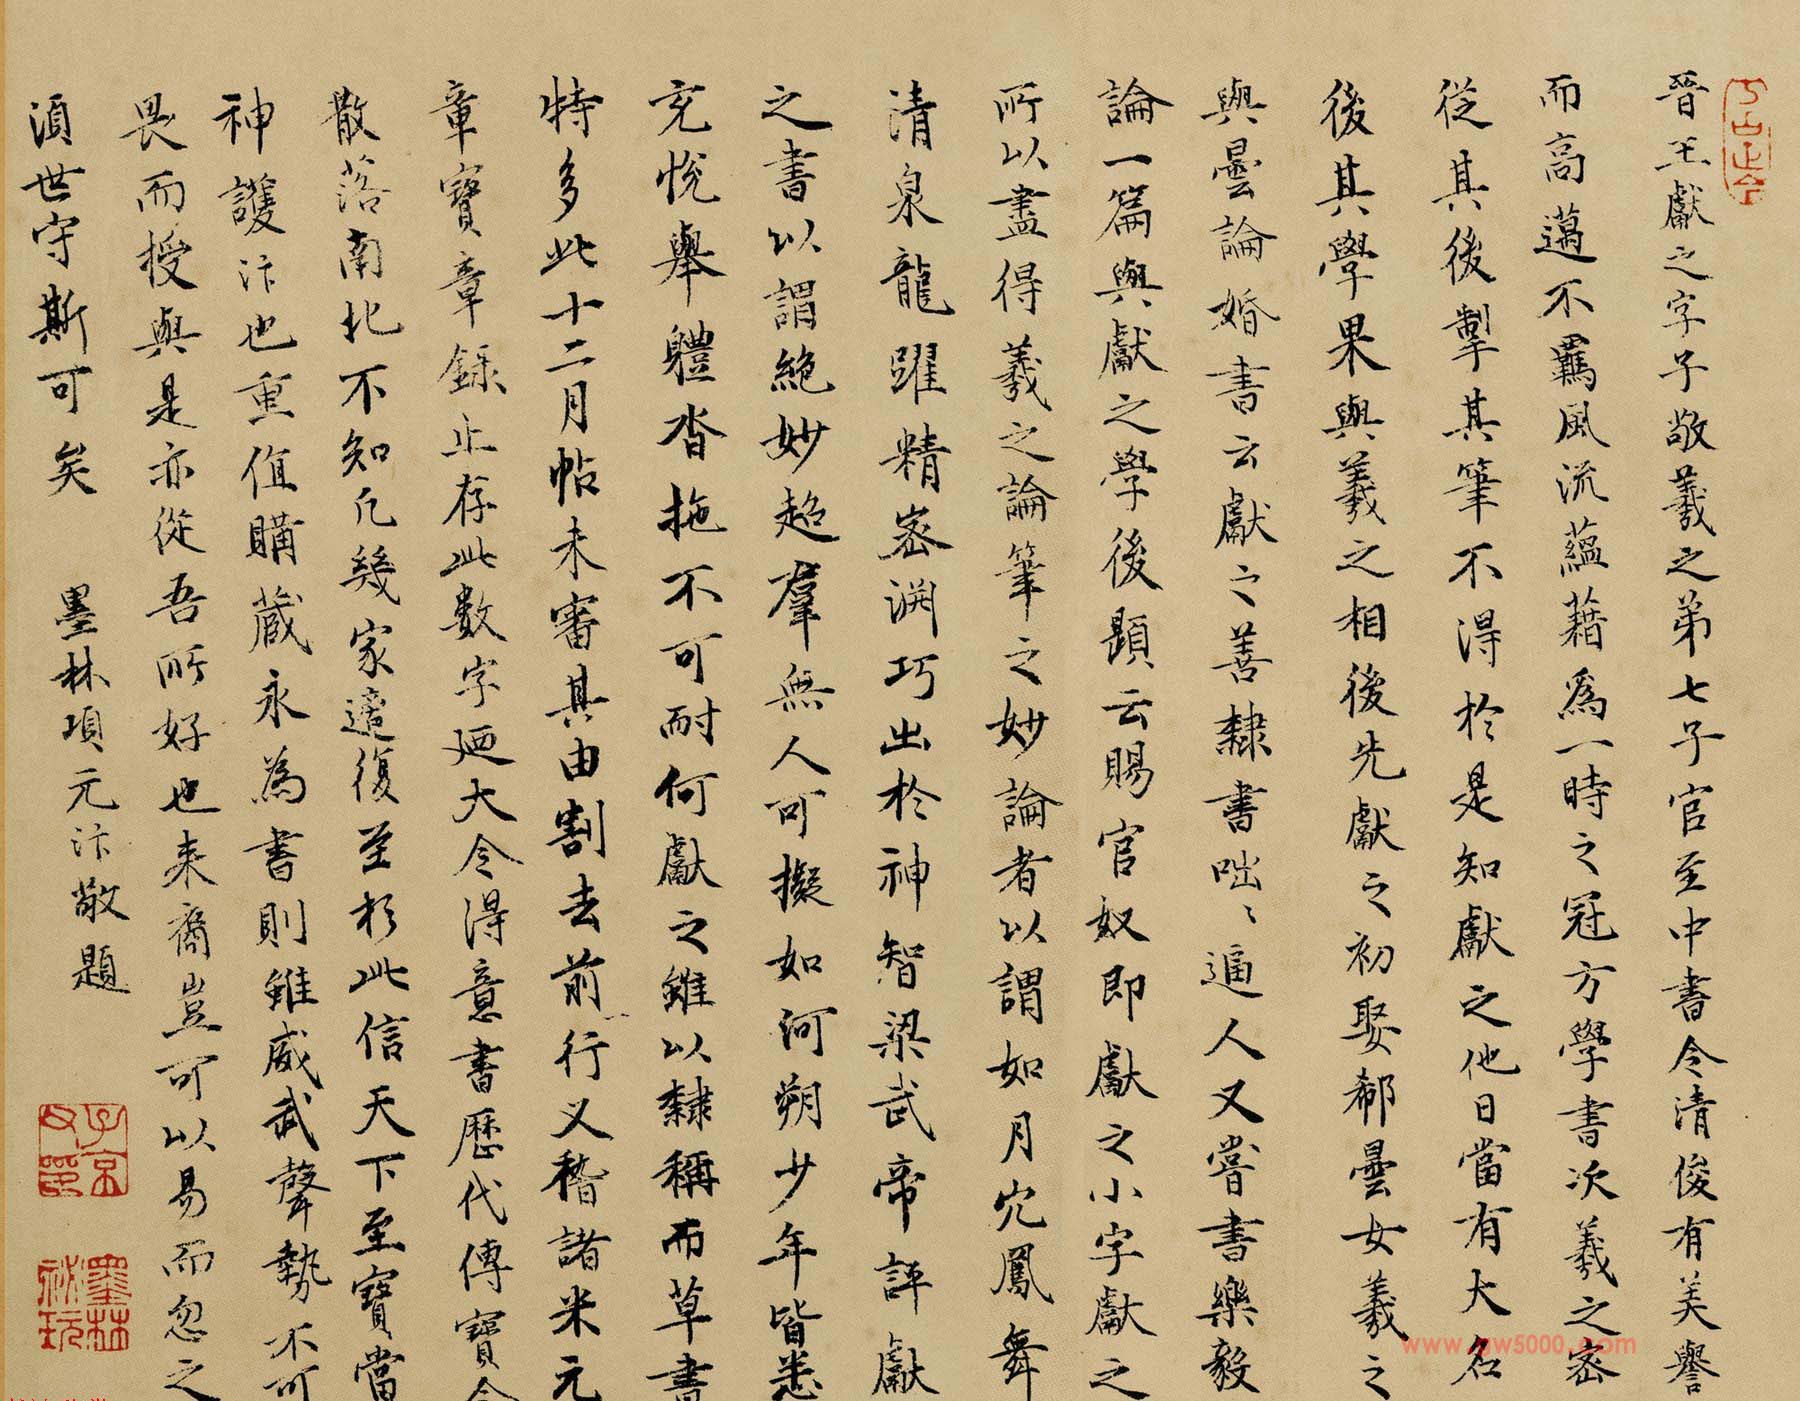 晉王獻之字子敬羲之弟七子官至中書令清俊有美譽
而高邁不羈風流蘊藉為一時之冠方學書次羲之密
從其後掣其筆不得於是知獻之他日當有大名
後其學果與羲之相後先獻之初娶郗曇女羲之
與曇論婚書云獻之善隸書咄咄逼人又嘗書樂毅
論一篇與獻之學後題云賜官奴即獻之小字獻之
所以盡得羲之論筆之妙論者以謂如月穴鳳舞
清泉龍躍精密淵巧出於神智梁武帝評獻
之書以謂絕妙超羣無人可擬如河朔少年皆悉
充悅舉體沓拖不可耐何獻之雖以隸稱而草書
特多此十二月帖未審其由割去前行又稽諸米元
章寶章錄止存此數字廼大令得意書歷代傳寶今
散落南北不知凡幾家適復至於此信天下至寶當
神護汴也重值購藏永為書則雖威武聲勢不可
畏而授與是亦從吾所好也来裔豈可以易而忽之
湏世守斯可矣 墨林項元汴敬題
子京父印
墨林秘玩
www.gw5000.com